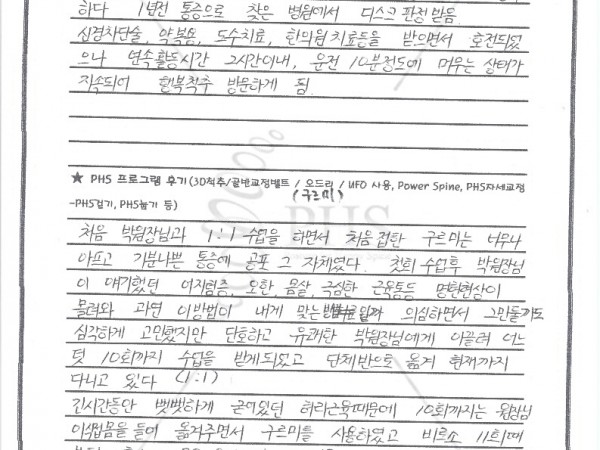 하다 1년전 통증으로 찾은 병원에서 디스크 판정 받음.
신경차단술, 약복용, 도수치료, 한의원 치료등을 받으면서 호전되었
으나 연속활동시간 2시간이내, 운전 10분정도에 머무는 상태가
지속되어 행복척추 방문하게 됨.
★ PHS 프로그램 후기(3D척추/골반교정벨트 / 오드리 / UFO 사용, Power Spine, PHS자세교정
(구르미)
-PHS걷기, PHS눕기 등)
PHS
처음 박원장님과 1:1 수업을 하면서 처음 접한 구르미는 너무나
아프고 기분나쁜 통증에 공포 그 자체였다. 첫회 수업후 박원장님
이 얘기했던 어지럼증, 오한, 몸살, 극심한 근육통등 명현현상이
몰려와 과연 이방법이 내게 맞는 일까 의심하면서 그만둘가도
심각하게 고민했지만 단호하고 유쾌한 박원장님에게 이끌려 어느
덧 10회까지 수업을 받게되었고 단체반으로 옮겨 현재까지
다니고 있다 (1:1)
긴시간동안 뻣뻣하게 굳어있던 허리근육때문에 10회까지는 원장님
이 몸을 들어 옮겨주면서 구르미를 사용하였고 비로소 11회때